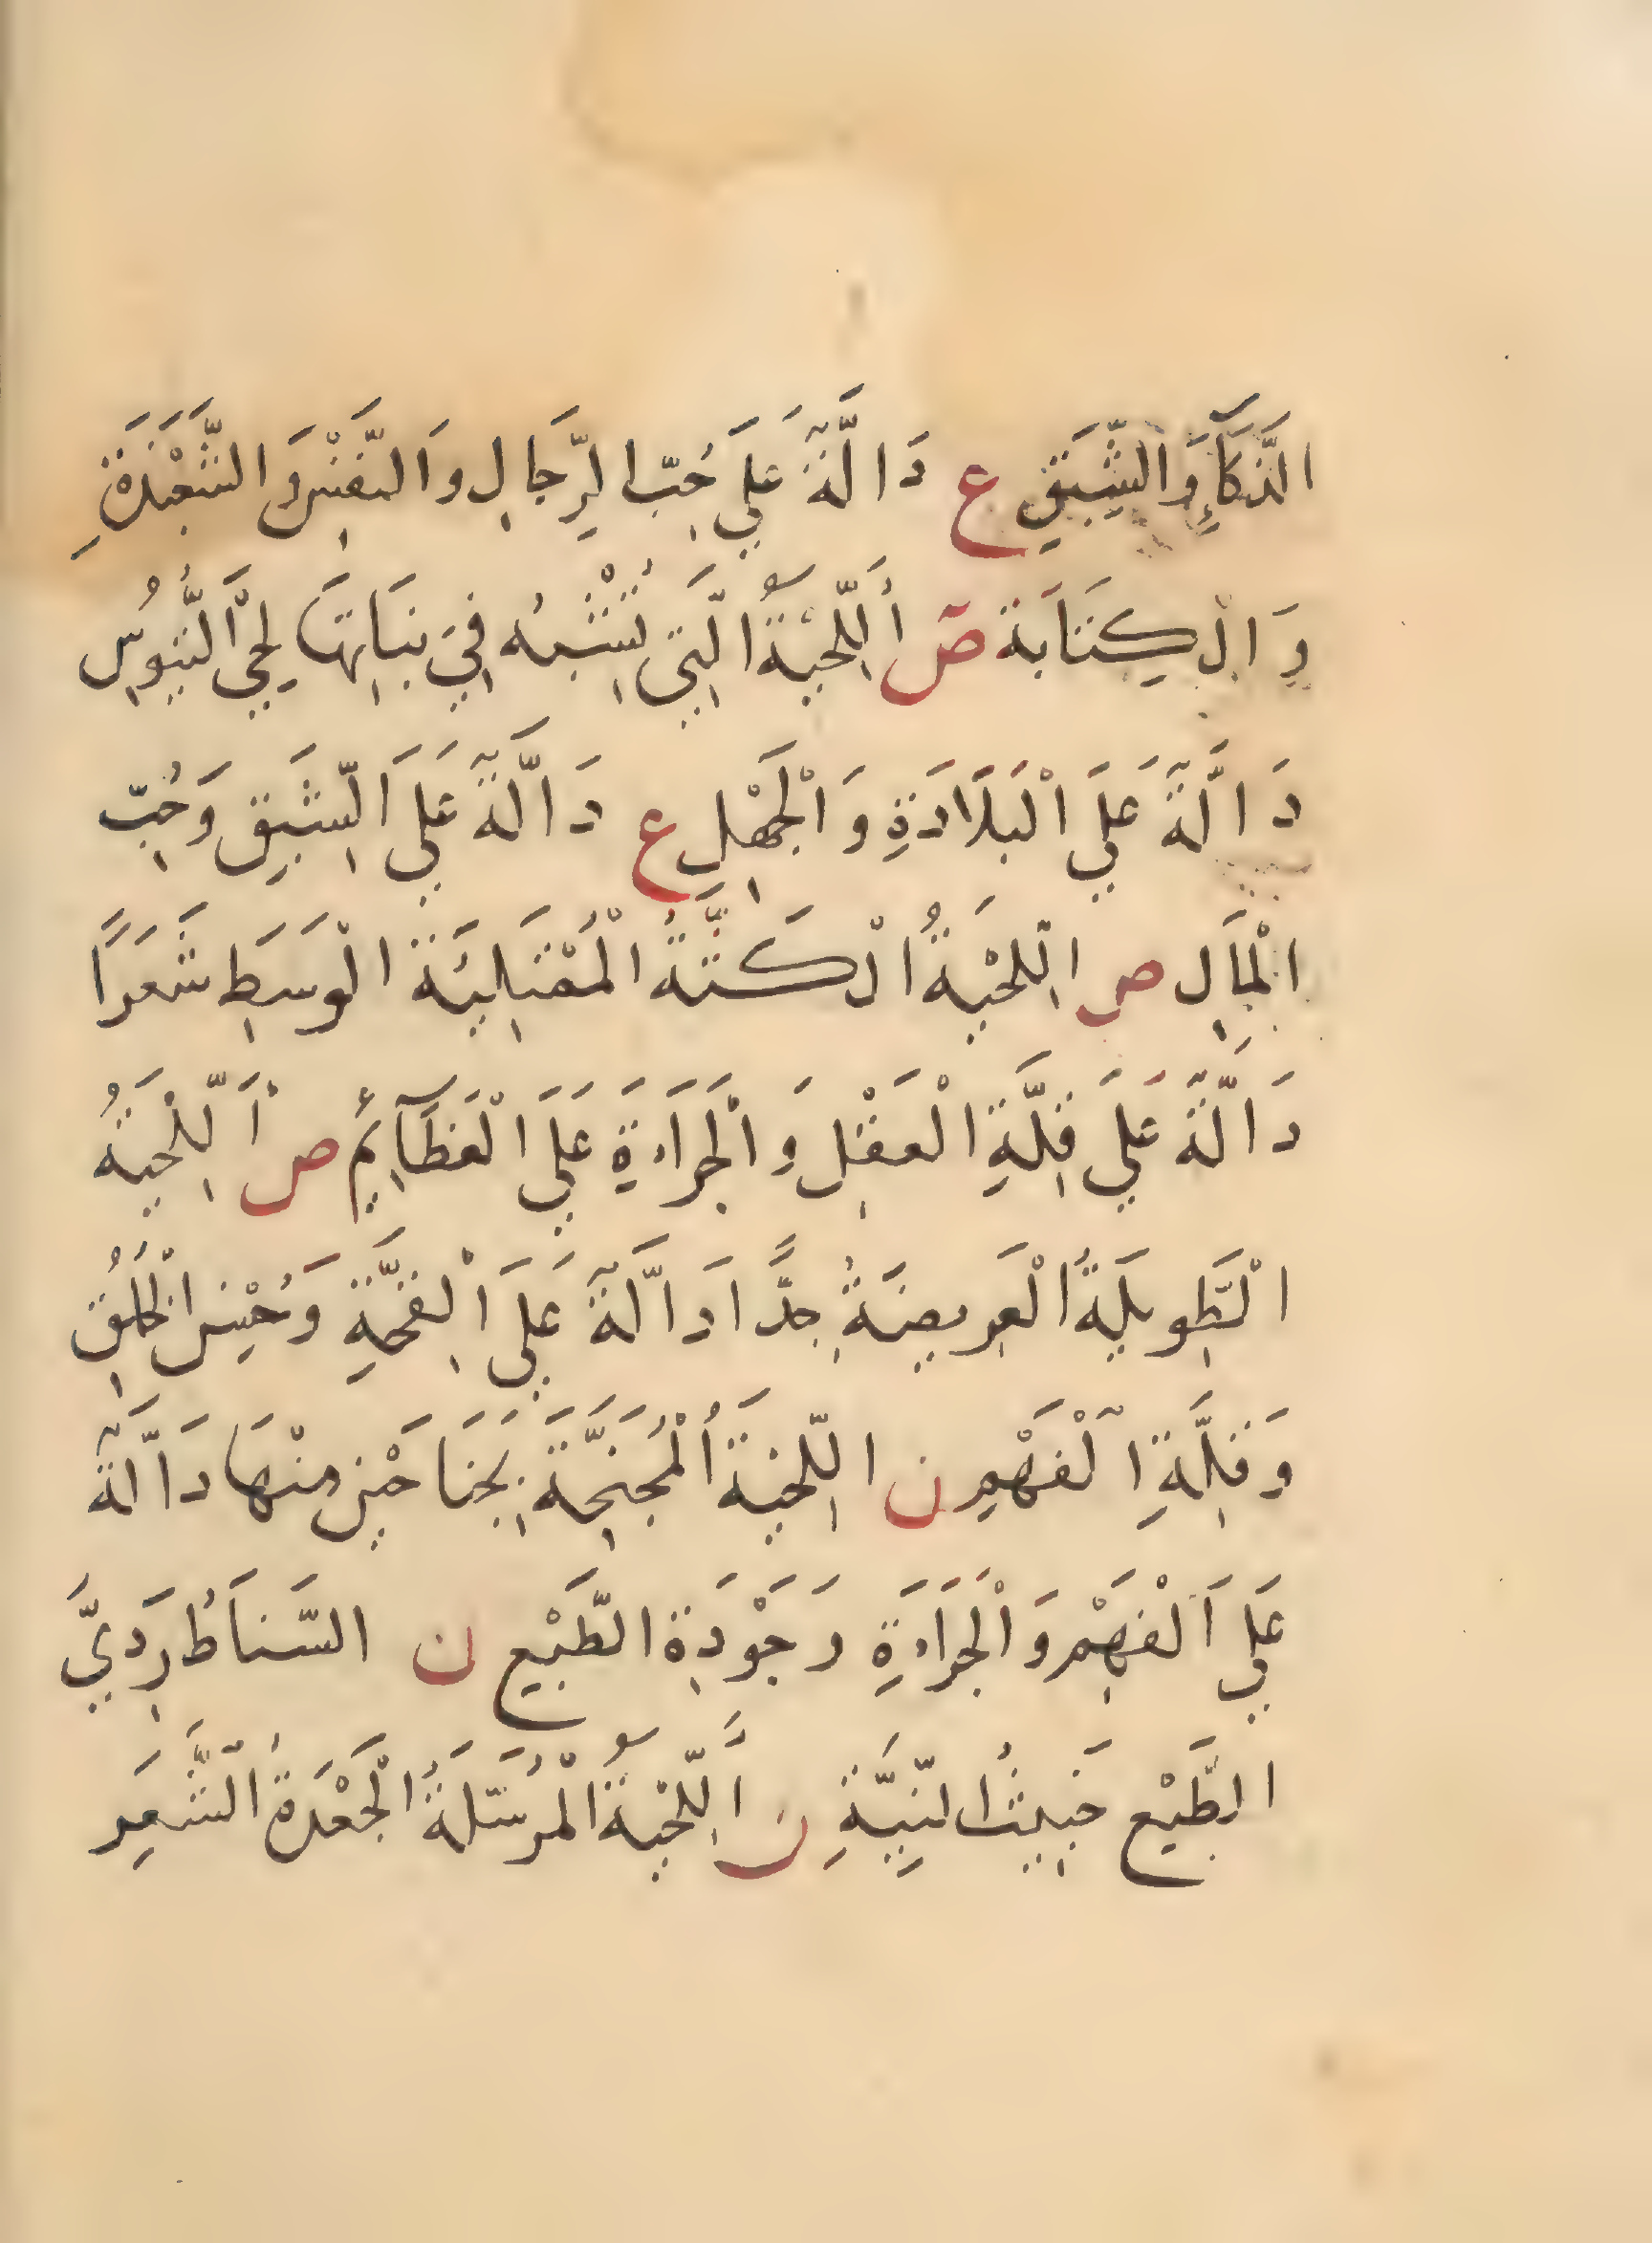 الذَّكَآءِ وَالشَّبَقِ ع دَالَّةٌ عَلَي حُبِّ الرِّجَالِ وَالنَّفْسِ وَالشَّعْبَذَةِ
وَالكِتَابَة ص أللِّحْيَةُ الَّتِي تُشْبِهُ فِي نَبَاتِهَا لِحَيَّ التُّيُوسِ
دَالَّةٌ عَلَي الْبَلَادَةِ وَالْجَهْلِ ع دَالَّةٌ عَلَي الشَّبَقِ وَحُبِّ
الْمَالِ ص اللِّحْيَةُ الْكَثَّةُ الْمُمْتَلِيَةُ الْوَسَطِ شَعَرًا
دَالَّةٌ عَلَي قِلَّةِ الْعَقْلِ وَالْجَرَاءَةِ عَلَي الْعَظَآئِمِ ص أَللِّحْيَةُ
الْطَّوِيلَةُ الْعَرِيضَةُ جِدًّا دَالَّةٌ عَلَي الْفَخْمَةِ وَحُسْنِ الْخُلُقِ
وَقِلَّةِ الْفَهْمِ ن اللِّحْيَةُ الْمُجَنَّحَةُ بِجَنَاحَيْنِ مِنْهَا دَالَّةٌ
عَلَي الْفَهْمِ وَالْجَرَاءَةِ وَجَوْدَةِ الطَّبْعِ ن السَّنَاطُ رَدِيُّ
الطَّبْعِ خَبِيثُ النِّيَّةِ ن اَللِّحْيَةُ الْمُرْسَلَةُ الْجَعْدَةُ الشَّعَرِ